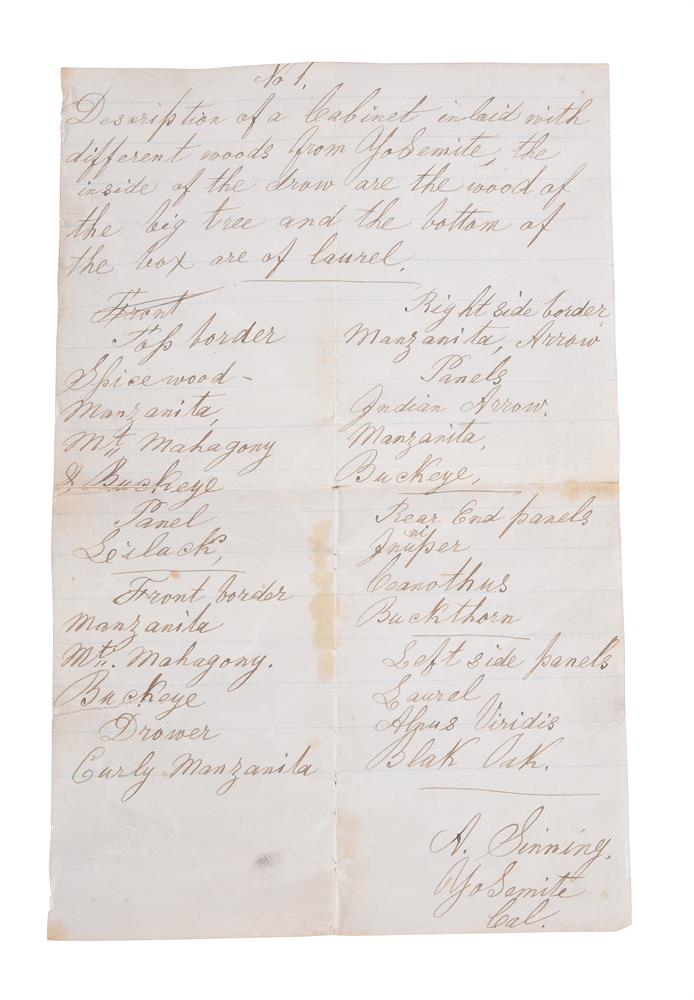 No 1.
Description of a Cabinet inlaid with
different woods from YoSemite, the
inside of the drow are the wood of
the big tree and the bottom of
the box are of laurel.
Front
Top border
Spice wood -
Manzanita,
Mt. Mahagony
& Buckeye
Panel
Leilack,
Front border
Manzanita
Mt. Mahagony.
Buckeye
Drower
Curly Manzanita
Right side border
Manzanita, Arrow
Panels
Indian Arrow,
Manzanita,
Buckeye,
Rear End panels
Juniper
Ceanothus
Buckthorn
Left side panels
Laurel
Alnus Viridis
Blak Oak.
A. Sinning.
YoSemite
Cal.